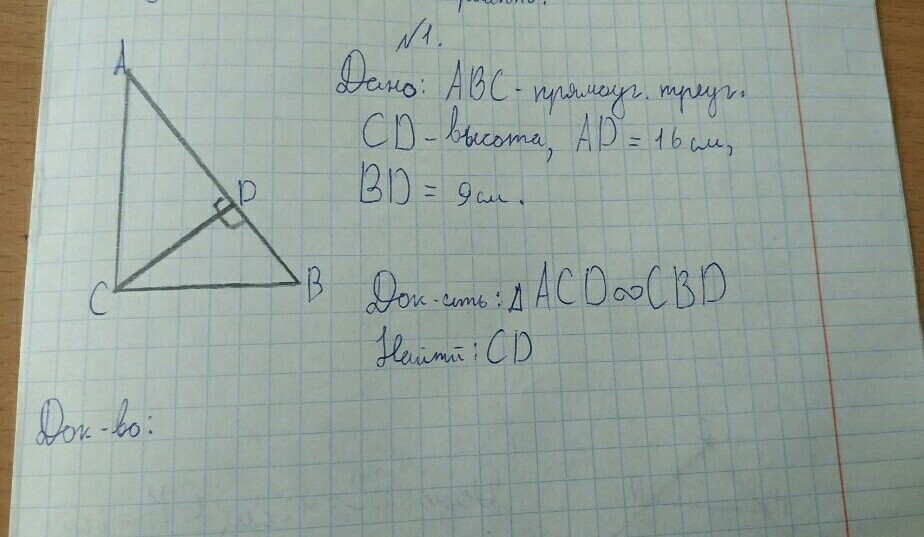 №1.
A
Дано: ABC - прямоуг. треуг.
CD - высота, AD = 16 см,
D
BD = 9 см.
C
B
Док-ать: Δ ACD ∞ CBD
Найти: CD
Док-во: